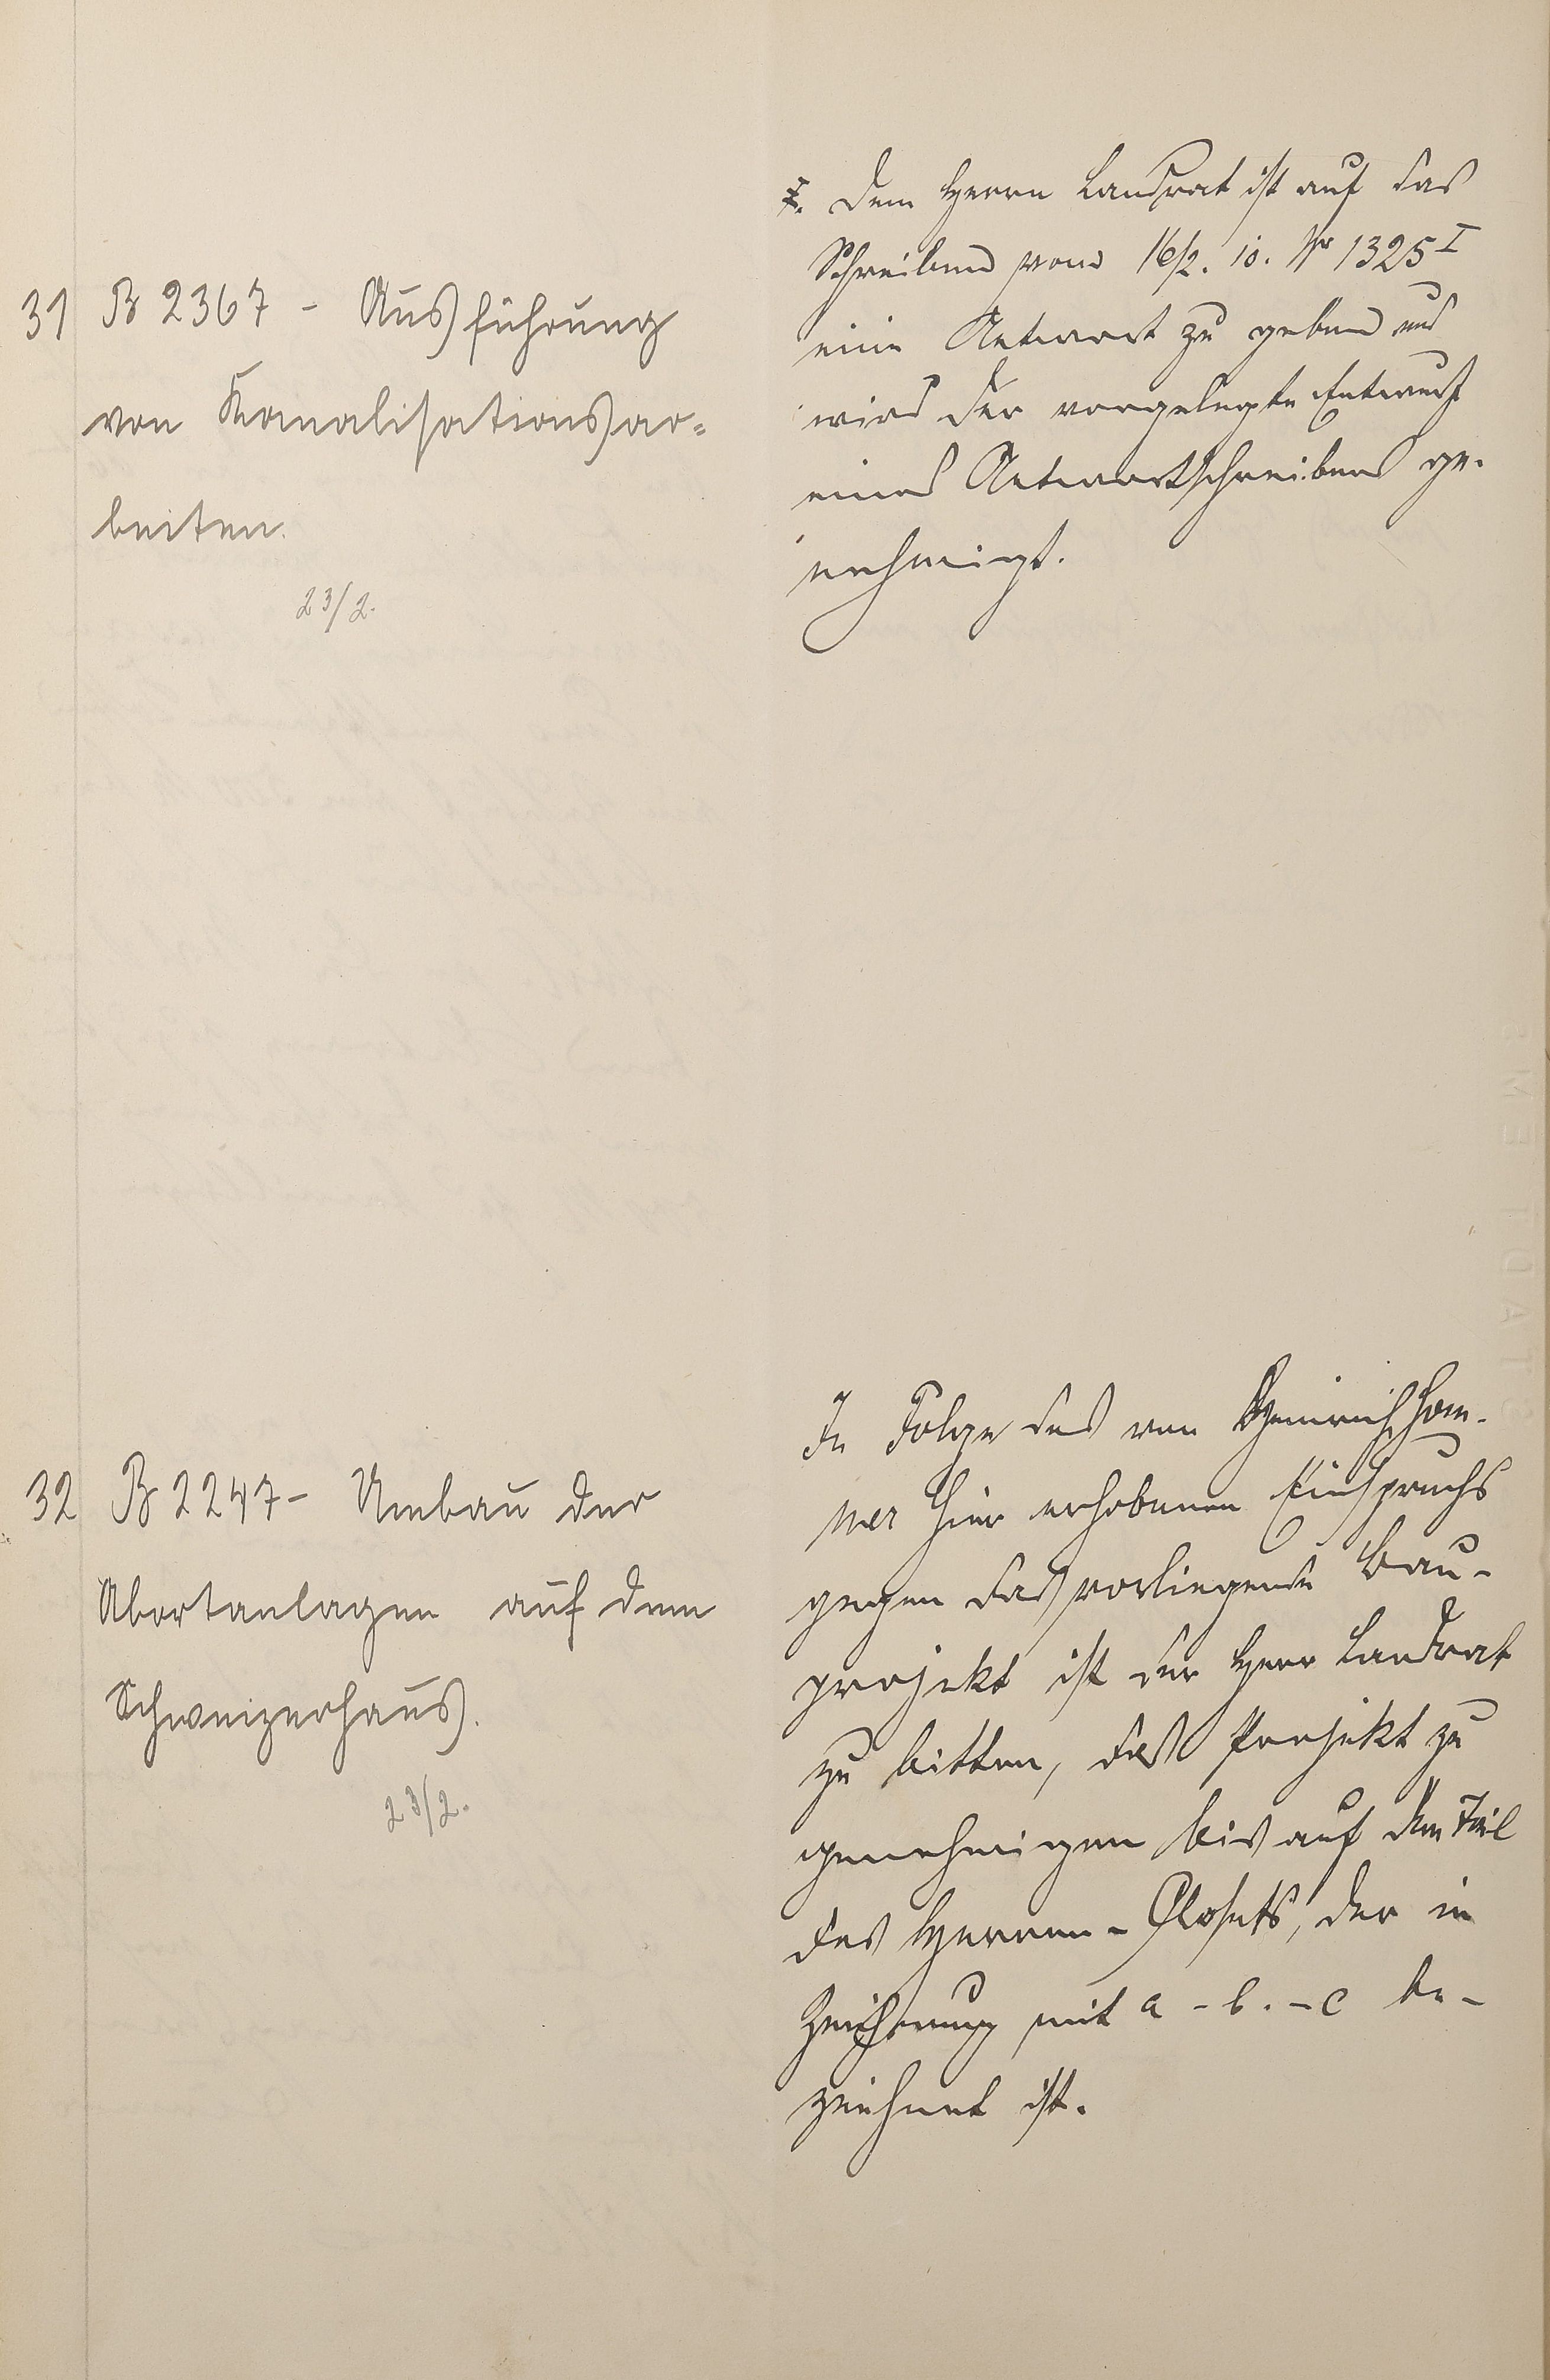 31 B 2367 - Ausführung
von Kanalisationsar=
beiten.
23/2.
I. Dem Herrn Landrat ist auf das
Schreiben vom 16/2. 10. Nr 1325 I
eine Antwort zu geben und
wird der vorgelegte Entwurf
eines Antwortschreibens ge-
nehmigt.
32 B 2247 - Umbau der
Abortanlagen auf dem
Schweizerhaus.
23/2.
In Folge des von Heinrich Hom-
mer hier erhobenen Einspruchs
gegen das vorliegende Bau-
projekt ist der Herr Landrat
zu bitten, das Projekt zu
genehmigen bis auf den Teil
des Herren-Closets, der in
Zeichnung mit a - b. - c be-
zeichnet ist.